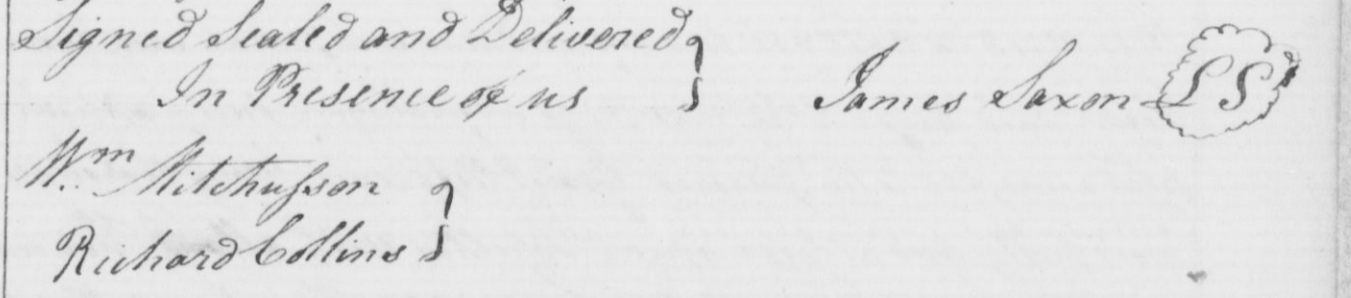 Signed Sealed and Delivered
In Presence of us } James Saxon LS
Wm Mitchusson
Richard Collins }